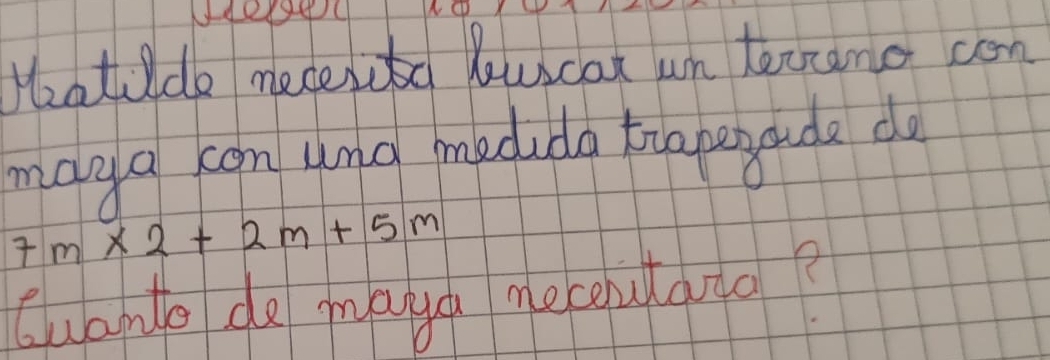 Matilde necesita buscar un terreno con
maya con una medida trapezoide de
7m x 2 + 2m + 5m
Cuanto de maya necesitara ?